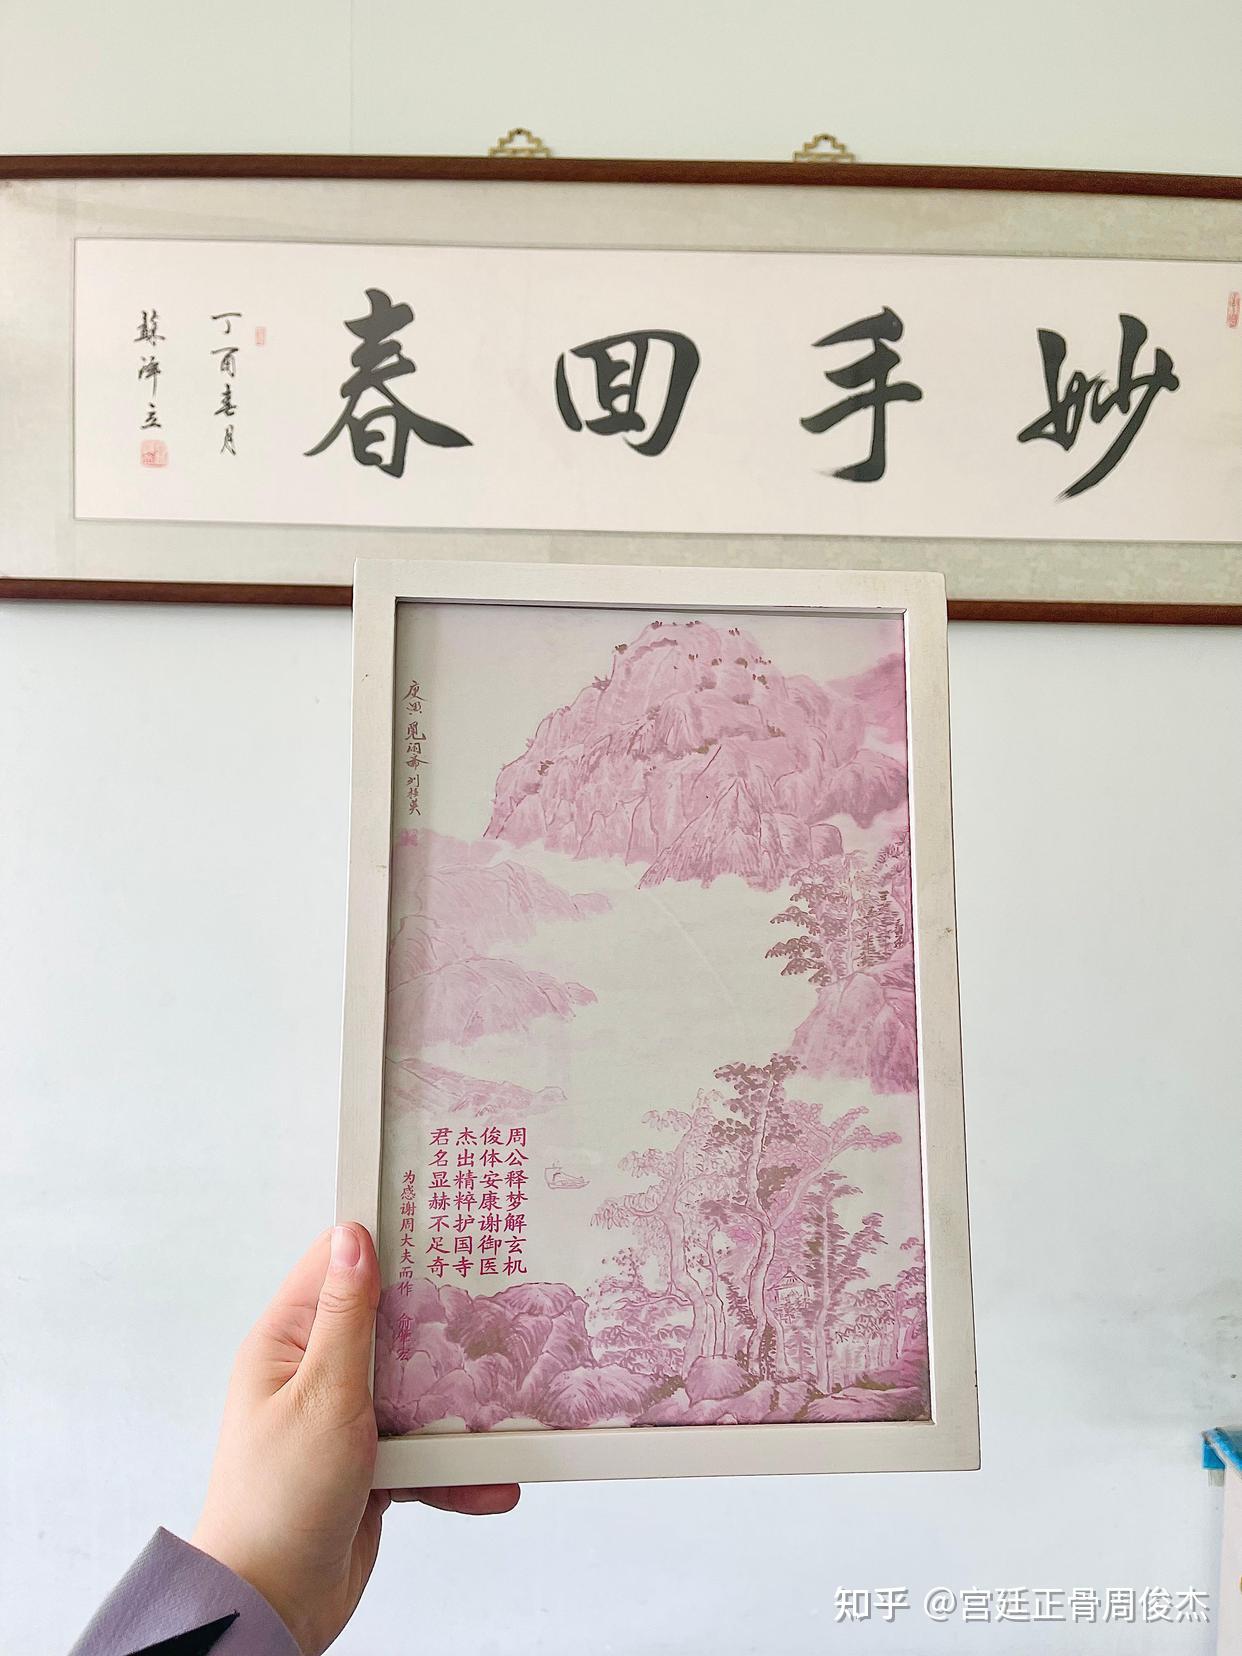 妙手回春
丁酉春月
苏泽立
周公释梦解玄机
俊体安康谢御医
杰出精粹护国寺
君名显赫不足奇
为感谢周大夫而作
知乎 @宫廷正骨周俊杰